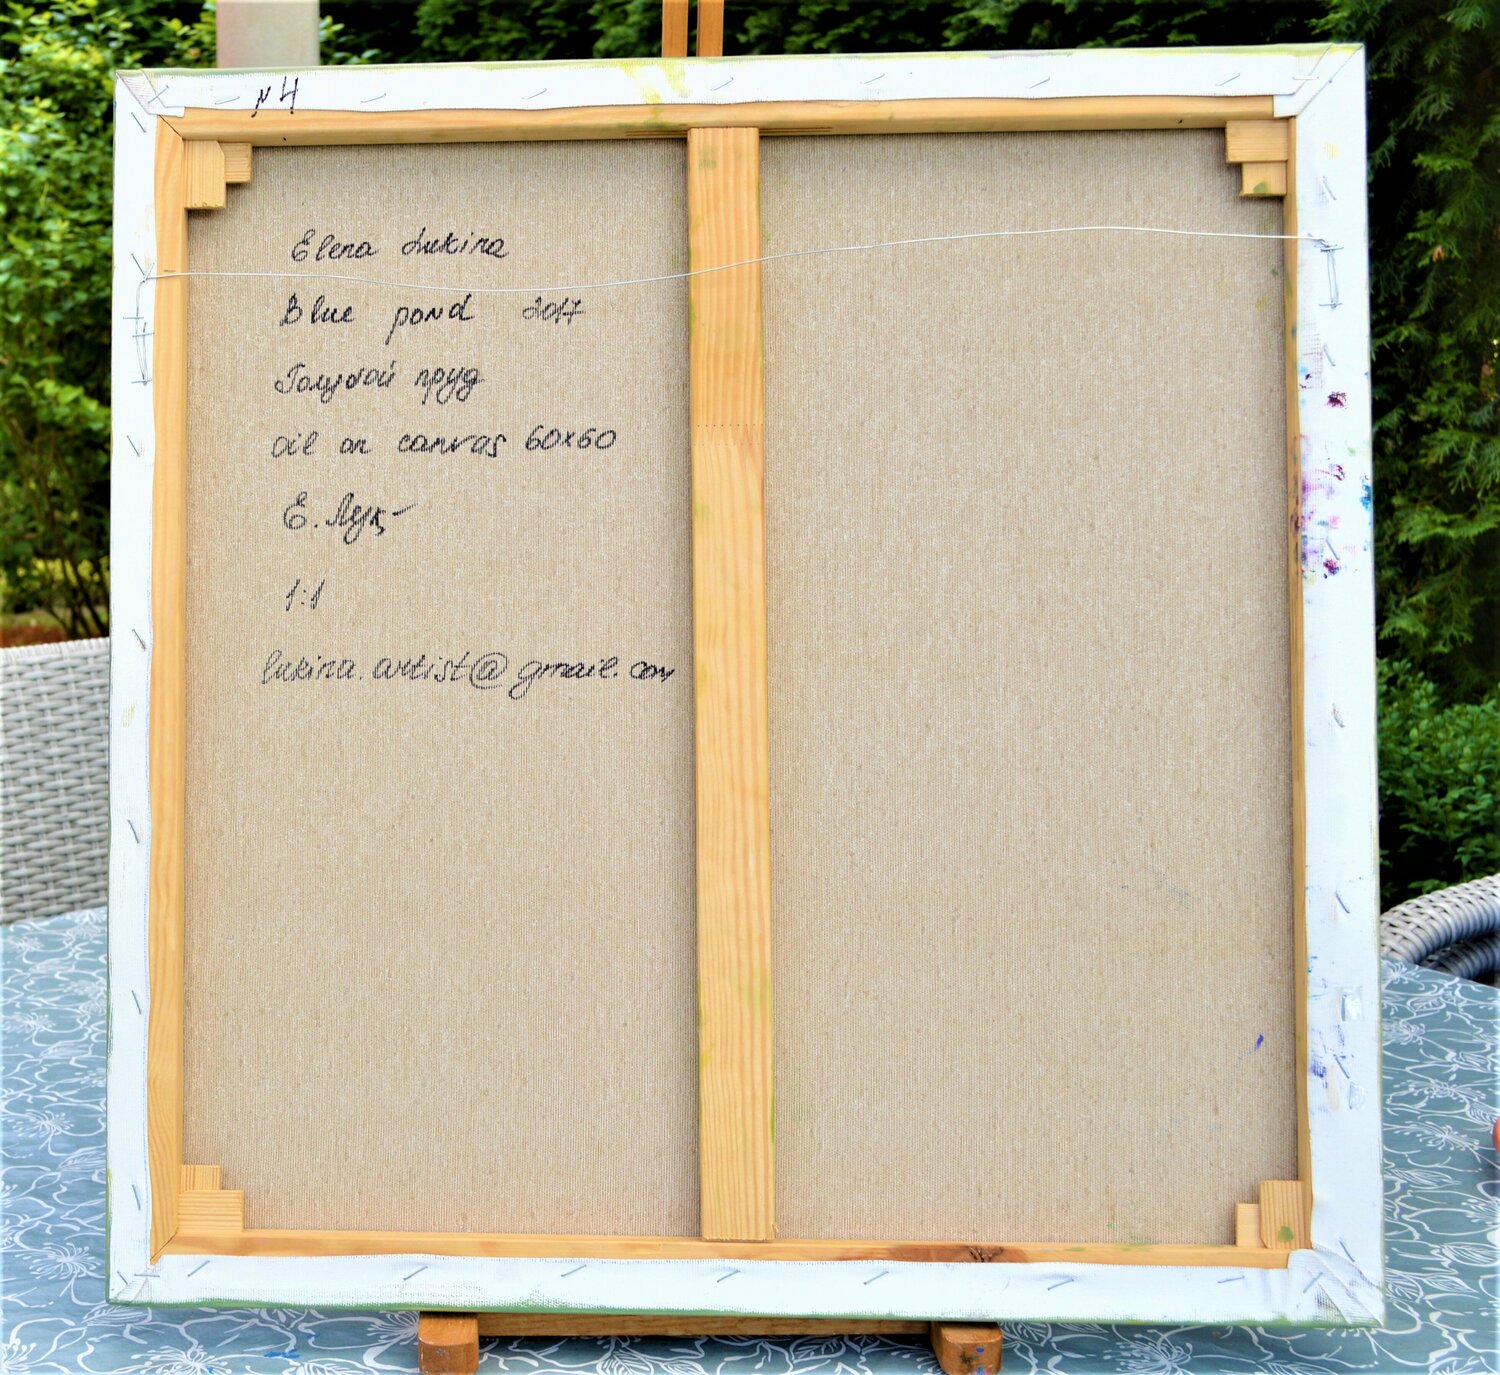 N4
Elena Lukina
Blue pond 2017
Голубой пруд
oil on canvas 60x60
Е. Лук
1:1
lukina.artist@gmail.com